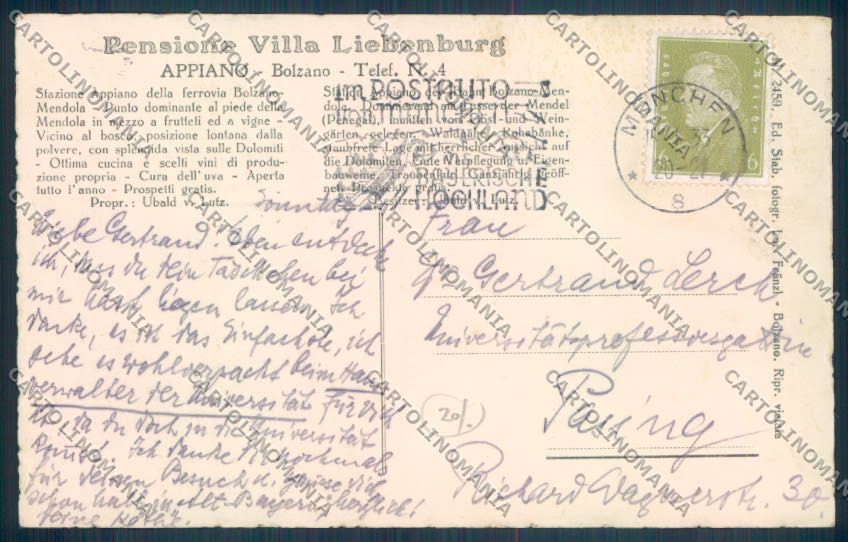 Pensione Villa Liebenburg
APPIANO - Bolzano - Telef. N. 4
Stazione Appiano della ferrovia Bolzano-
Mendola - Punto dominante al piede della
Mendola in mezzo a frutteti ed a vigne -
Vicino al bosco, posizione lontana dalla
polvere, con splendida vista sulle Dolomiti
- Ottima cucina e scelti vini di produ-
zione propria - Cura dell'uva - Aperta
tutto l'anno - Prospetti gratis.
Propr.: Ubald v. Lutz.
der Bahn Bozano-Men-
dola. Dominierend am Fusse der Mendel
(Penegal), inmitten von Obst- und Wein-
gärten gelegen. Waldnähe, Ruhebänke,
staubfreie Lage mit herrlicher Aussicht auf
die Dolomiten. Gute Verpflegung u. Eigen-
bauweine. Traubenkur. Ganzjährig geöff-
net. Prospekte gratis.
Besitzer: Ubald v. Lutz.
POSTAUTO
BAYERISCHE
HOCHLAND
MÜNCHEN
33
20-21
8
6
N. 2459. Ed. Stab. fotogr. Lor. Fränzl - Bolzano. Ripr. vietata
Sonntag
Liebe Gertraud! Eben entdecke
ich, dass du dein Täschchen bei
mir hast liegen lassen. Ich
denke, es ist das Einfachste, ich
gebe es wohlverpackt beim Haus
verwalter der Universität für dich
ab, da du doch in die Universität
kommst. Ich danke dir nochmals
für deinen Besuch u. grüsse dich
schon halb in Alt-Bayern herzlich!
Deine Käthe.
Frau
Gertraud Lerch
Universitätsprofessorsgattin
Pasing
Richard Wagnerstr. 30.
20/.
CARTOLINOMANIA